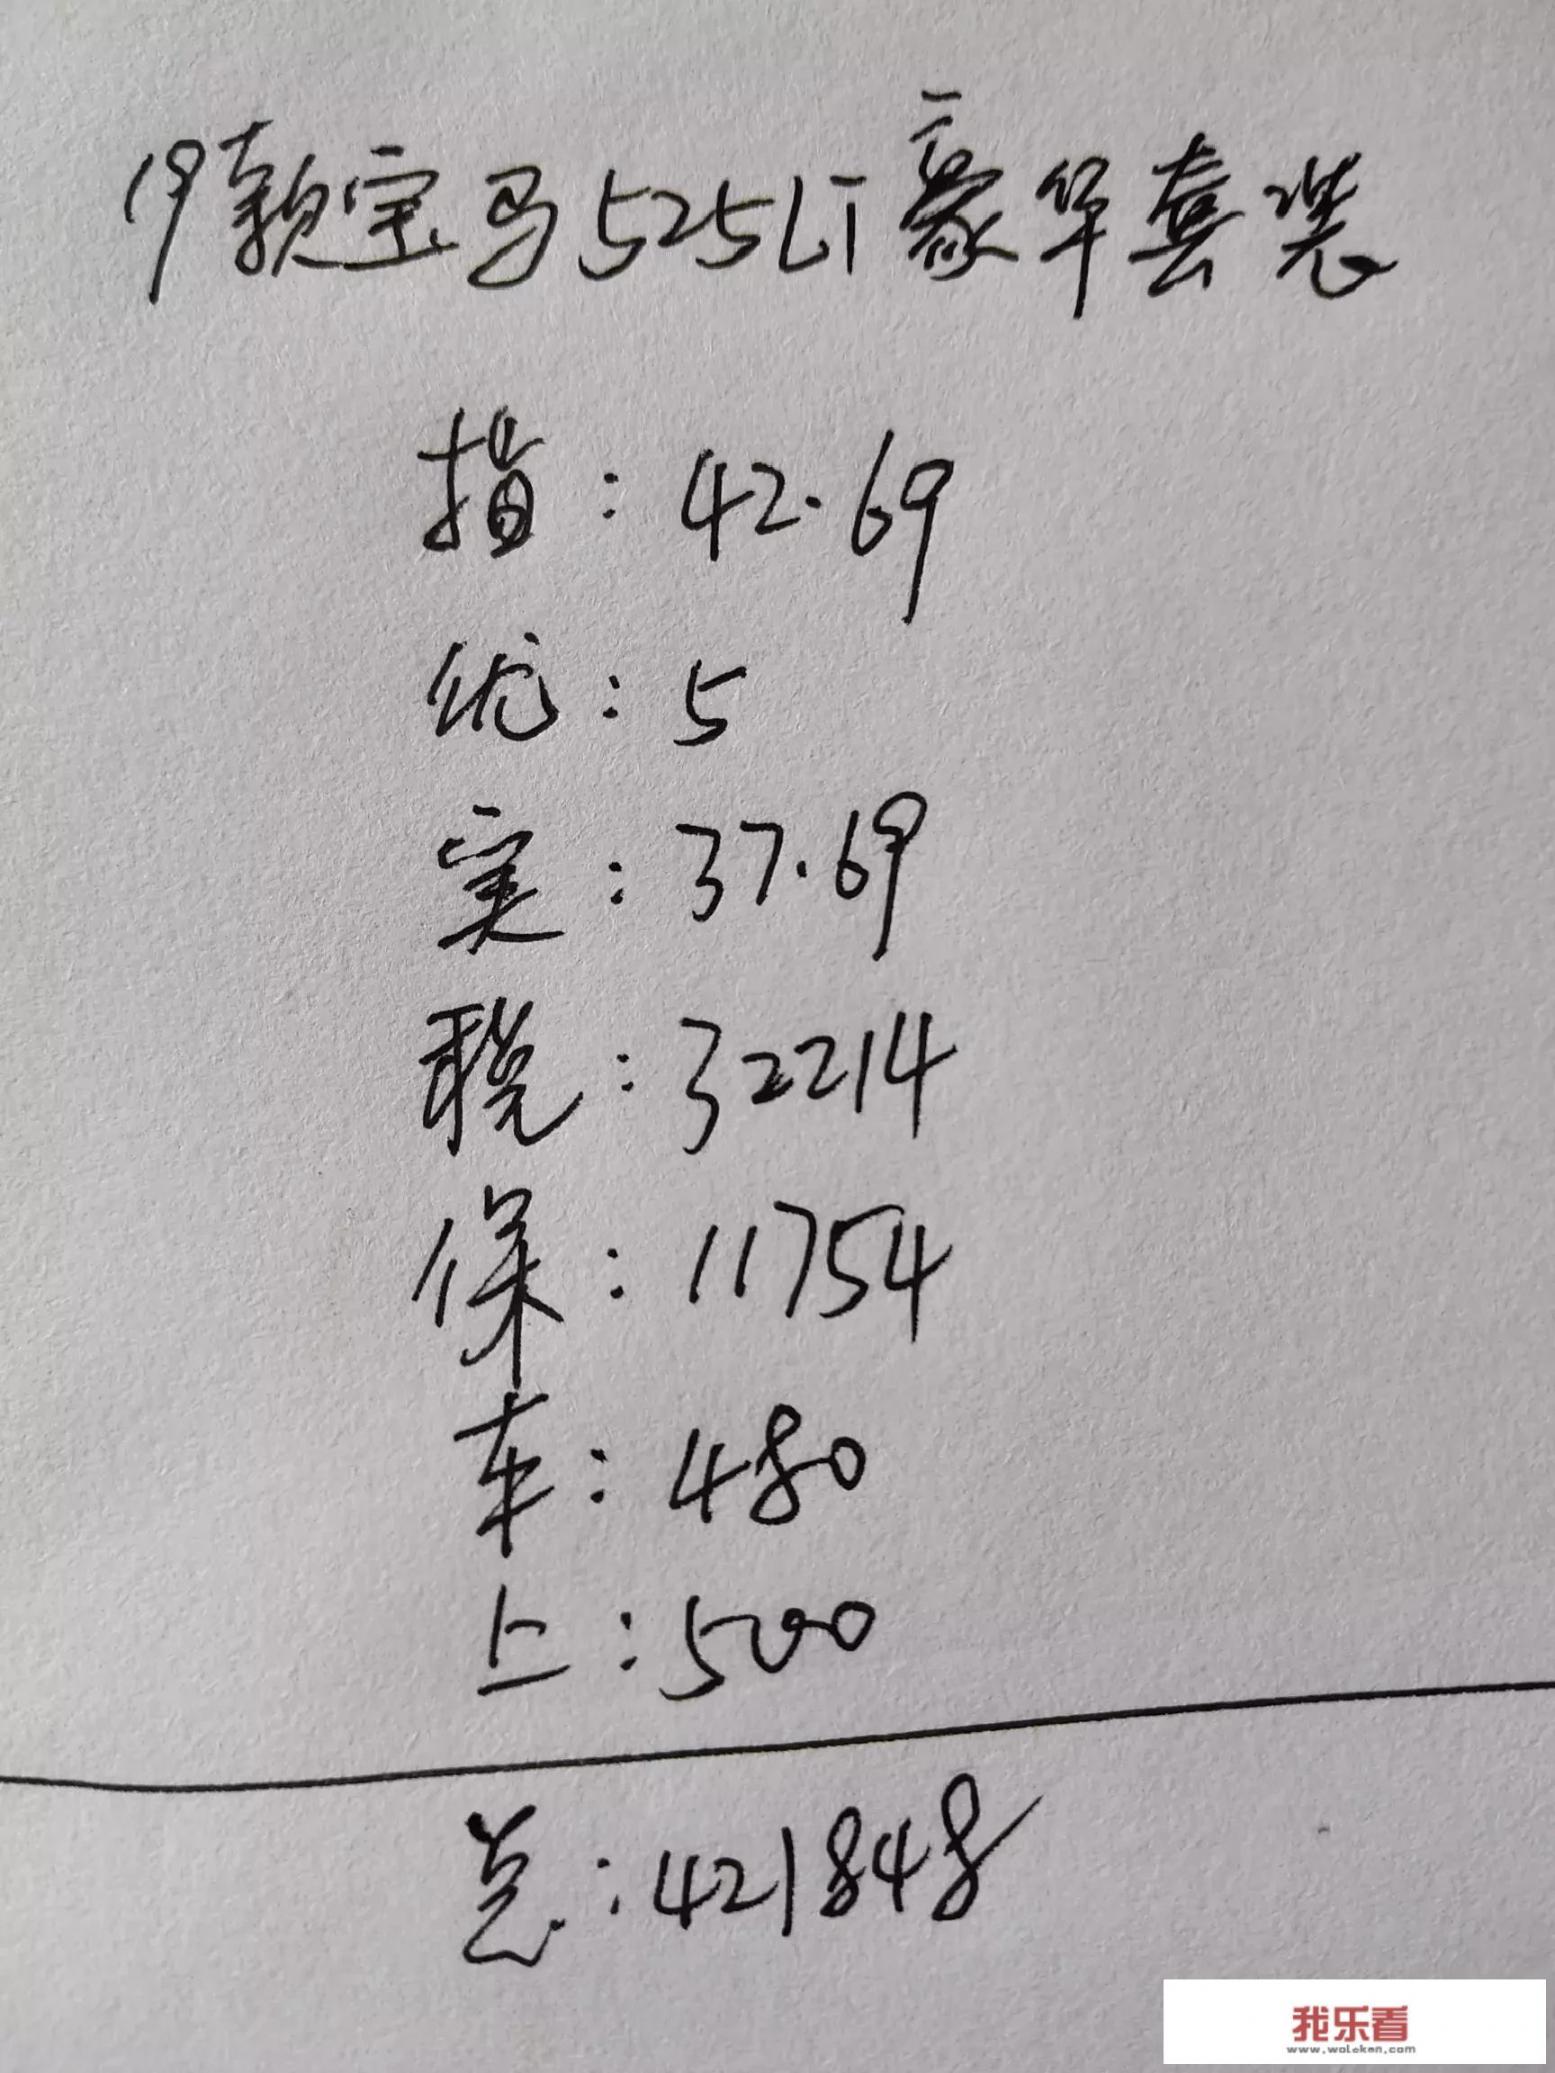 19款宝马525Li豪华套装
指:42.69
优:5
实:37.69
税:32214
保:11754
车:480
上:500
总:421848
我乐看
www.woleken.com